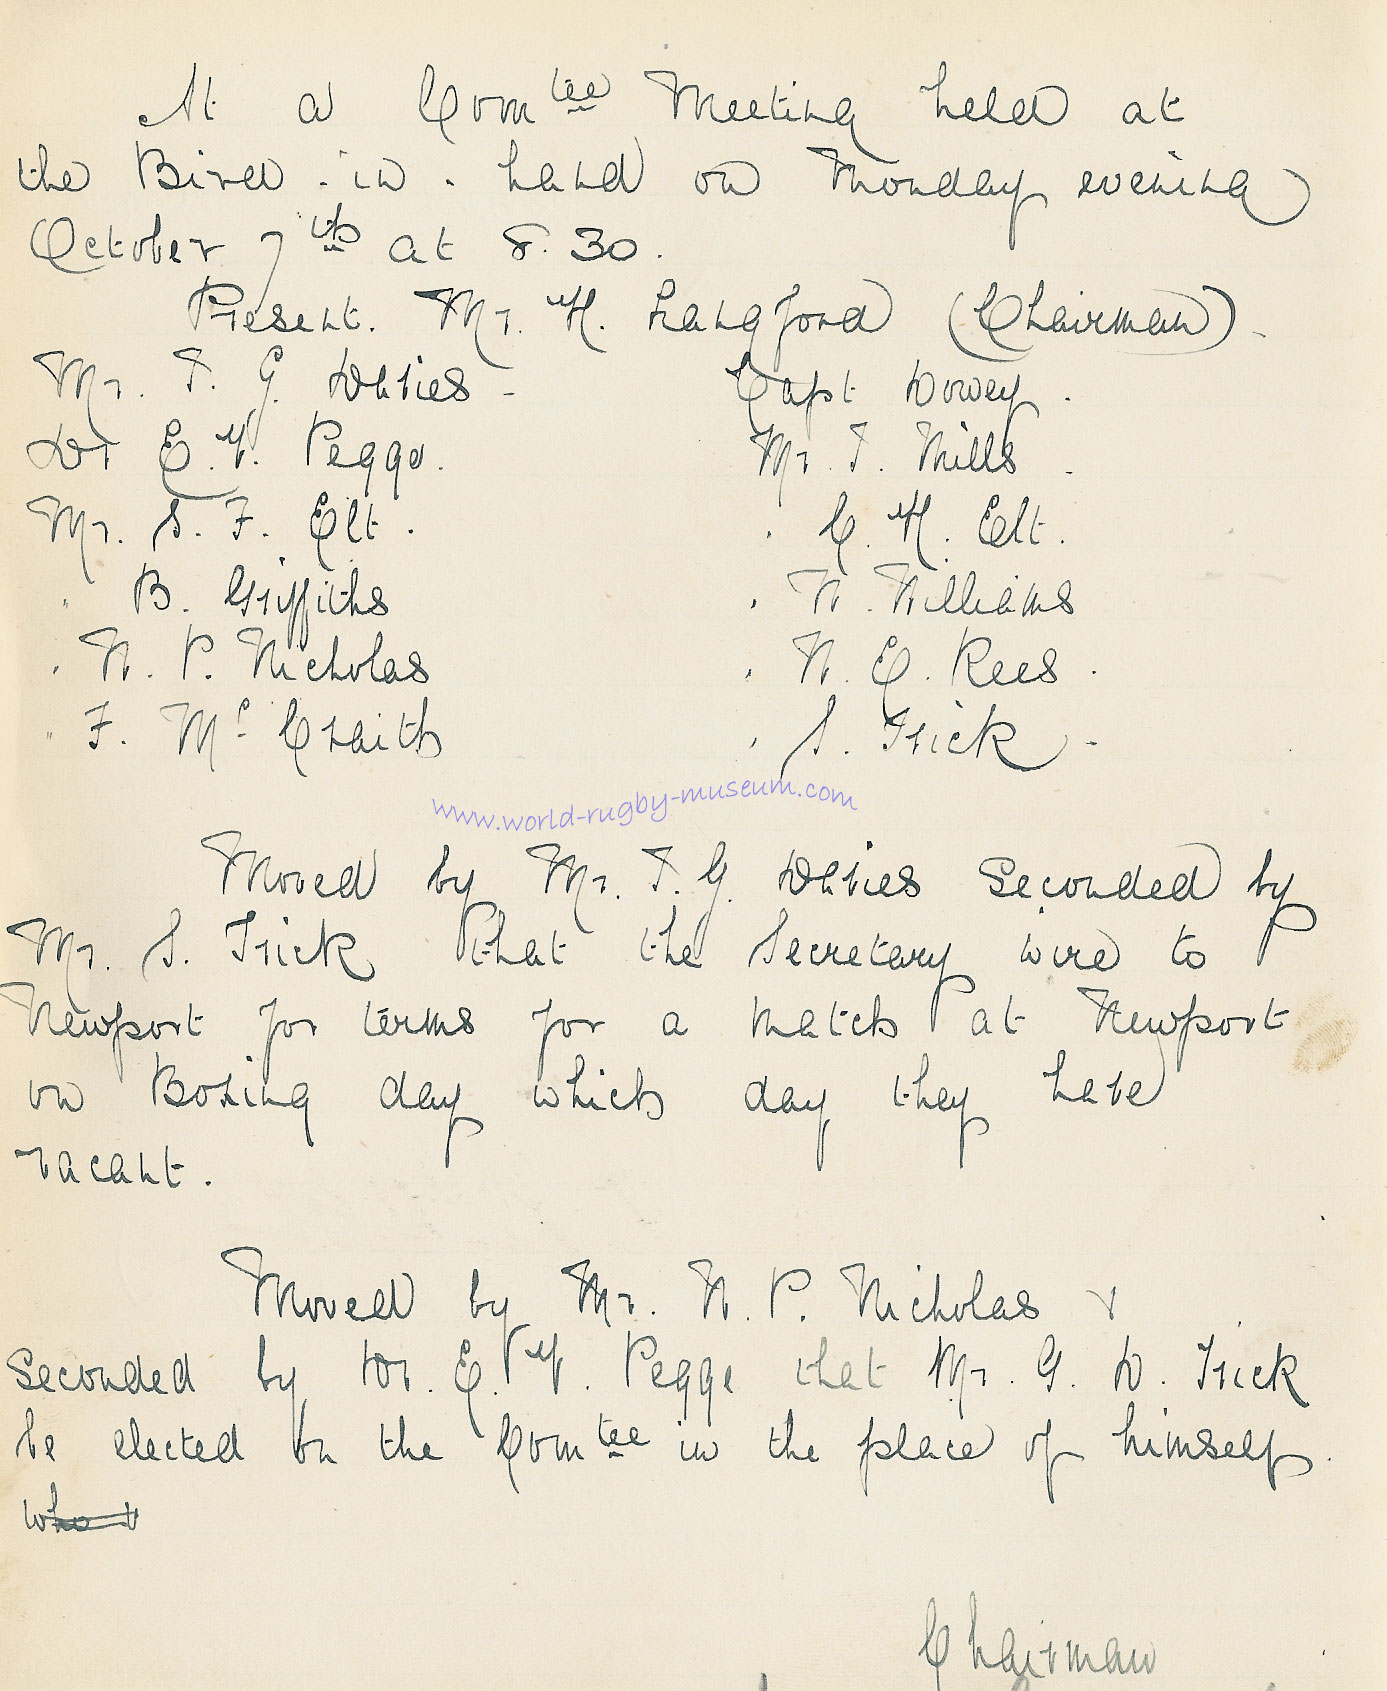 At a Com<sup>tee</sup> Meeting held at
the Bird-in-hand on Monday evening
October 7<sup>th</sup> at 8.30.
Present. Mr. H. Langford (Chairman).
Mr. T. G. Davies - Capt Dovey.
Dr E. V. Pegge. Mr. T. Mills.
Mr. S. F. Elt. " C. H. Elt.
" B. Griffiths " W. Williams
" W. P. Nicholas " W. E. Rees.
" F. Mc Craith " S. Trick -
www.world-rugby-museum.com
Moved by Mr. T. G. Davies Seconded by
Mr. S. Trick that the Secretary wire to
Newport for terms for a match at Newport
on Boxing day which day they have
vacant.
Moved by Mr. W. P. Nicholas &
Seconded by Dr. E. V. Pegge that Mr. G. D. Trick
be elected on the Com<sup>tee</sup> in the place of himself.
who
Chairman